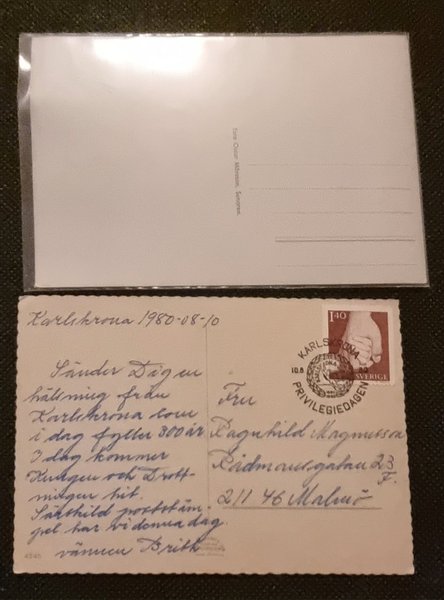 Karlskrona 1980-08-10
Sänder Dig en
hälsning från
Karlskrona som
i dag fyller 300 år
I dag kommer
Kungen och Drott-
ningen hit.
Särskild poststäm-
pel har vi denna dag.
vännen Britt
1 40
SVERIGE
KARLSKRONA
10.8
PRIVILEGIEDAGEN
Fru
Ragnhild Magnusson
Rådmansgatan 23
F.
211 46 Malmö